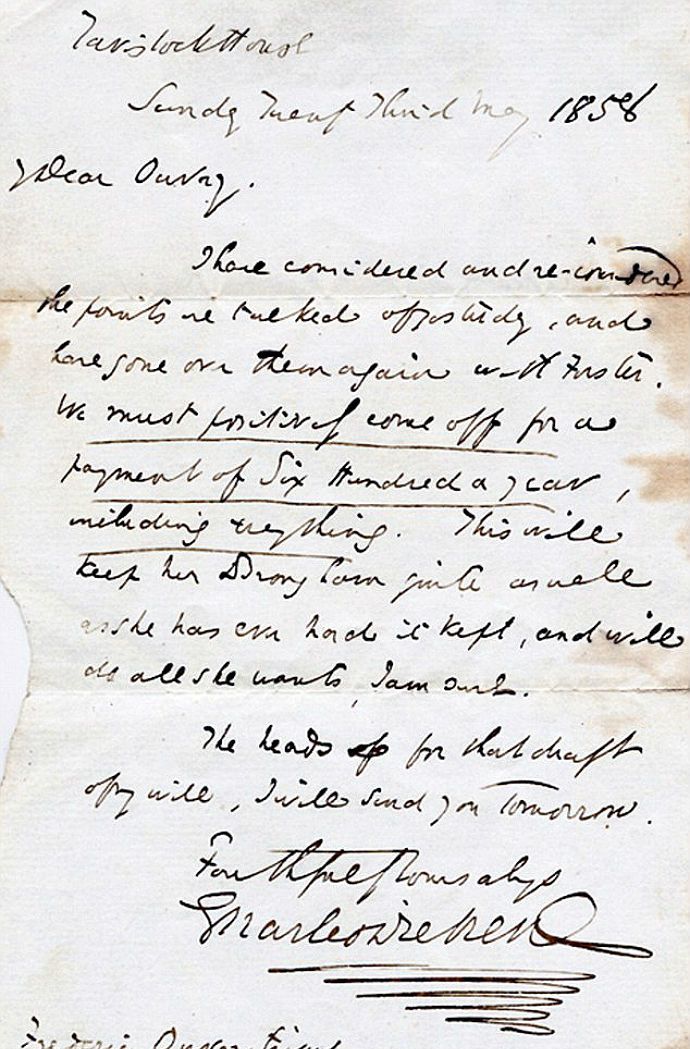 Tavistock House
Sunday Twenty Third May 1858
My Dear Ouvry.
I have considered and re-considered
the points we talked of yesterday, and
have gone over them again with Forster.
We must positively come off for a
payment of Six Hundred a year,
including everything. This will
keep her Brougham quite as well
as she has ever had it kept, and will
do all she wants, I am sure.
The heads for that draft
of my will, I will send you tomorrow.
Faithfully Yours always
Charles Dickens
Frederic Ouvry Esquire